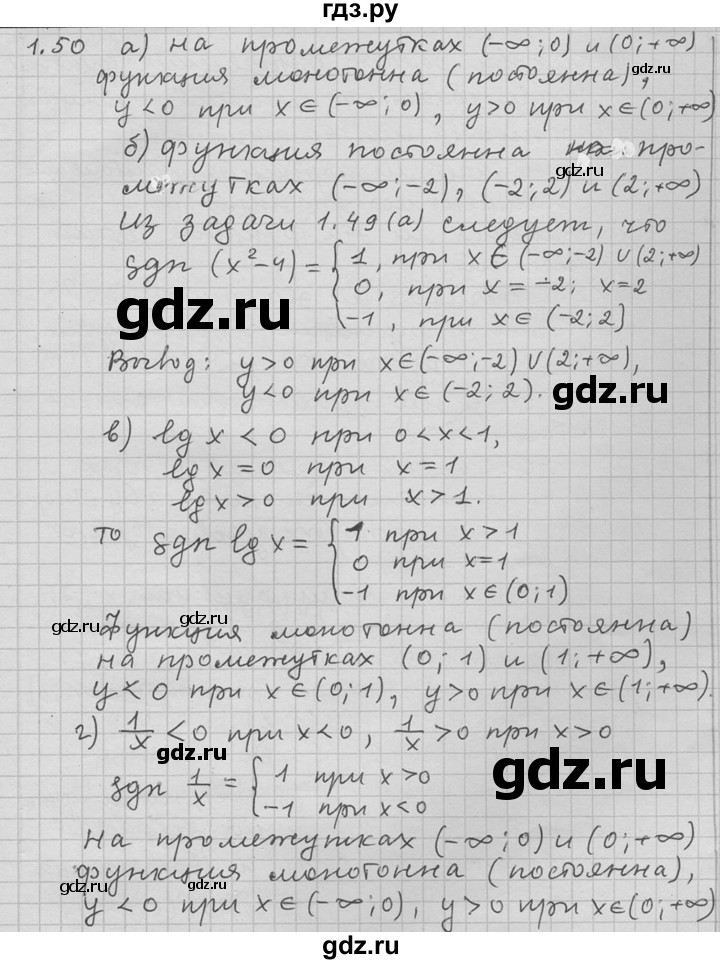 гдз.ру
1.50 а) на промежутках (-∞;0) и (0;+∞)
функция монотонна (постоянна),
y<0 при x∈(-∞;0), y>0 при x∈(0;+∞)
б) функция постоянна на про-
межутках (-∞;-2), (-2;2) и (2;+∞)
Из задачи 1.49(а) следует, что
sgn (x²-4) = { 1, при x∈(-∞;-2)∪(2;+∞)
0, при x=-2; x=2
-1, при x∈(-2;2]
gdz.ru
Вывод: y>0 при x∈(-∞;-2)∪(2;+∞),
y<0 при x∈(-2;2).
gdz.ru
в) lg x < 0 при 0<x<1,
lg x = 0 при x=1
lg x>0 при x>1.
gdz.ru
то sgn lg x = { 1 при x>1
0 при x=1
-1 при x∈(0;1)
gdz.ru
Функция монотонна (постоянна)
gdz.ru
на промежутках (0;1) и (1;+∞),
y<0 при x∈(0;1), y>0 при x∈(1;+∞).
gdz.ru
г) 1/x <0 при x<0, 1/x >0 при x>0
gdz.ru
gdz.ru
sgn 1/x = { 1 при x>0
-1 при x<0
На промежутках (-∞;0) и (0;+∞)
функция монотонна (постоянна),
gdz.ru
gdz.ru
y<0 при x∈(-∞;0), y>0 при x∈(0;+∞)
gdz.ru